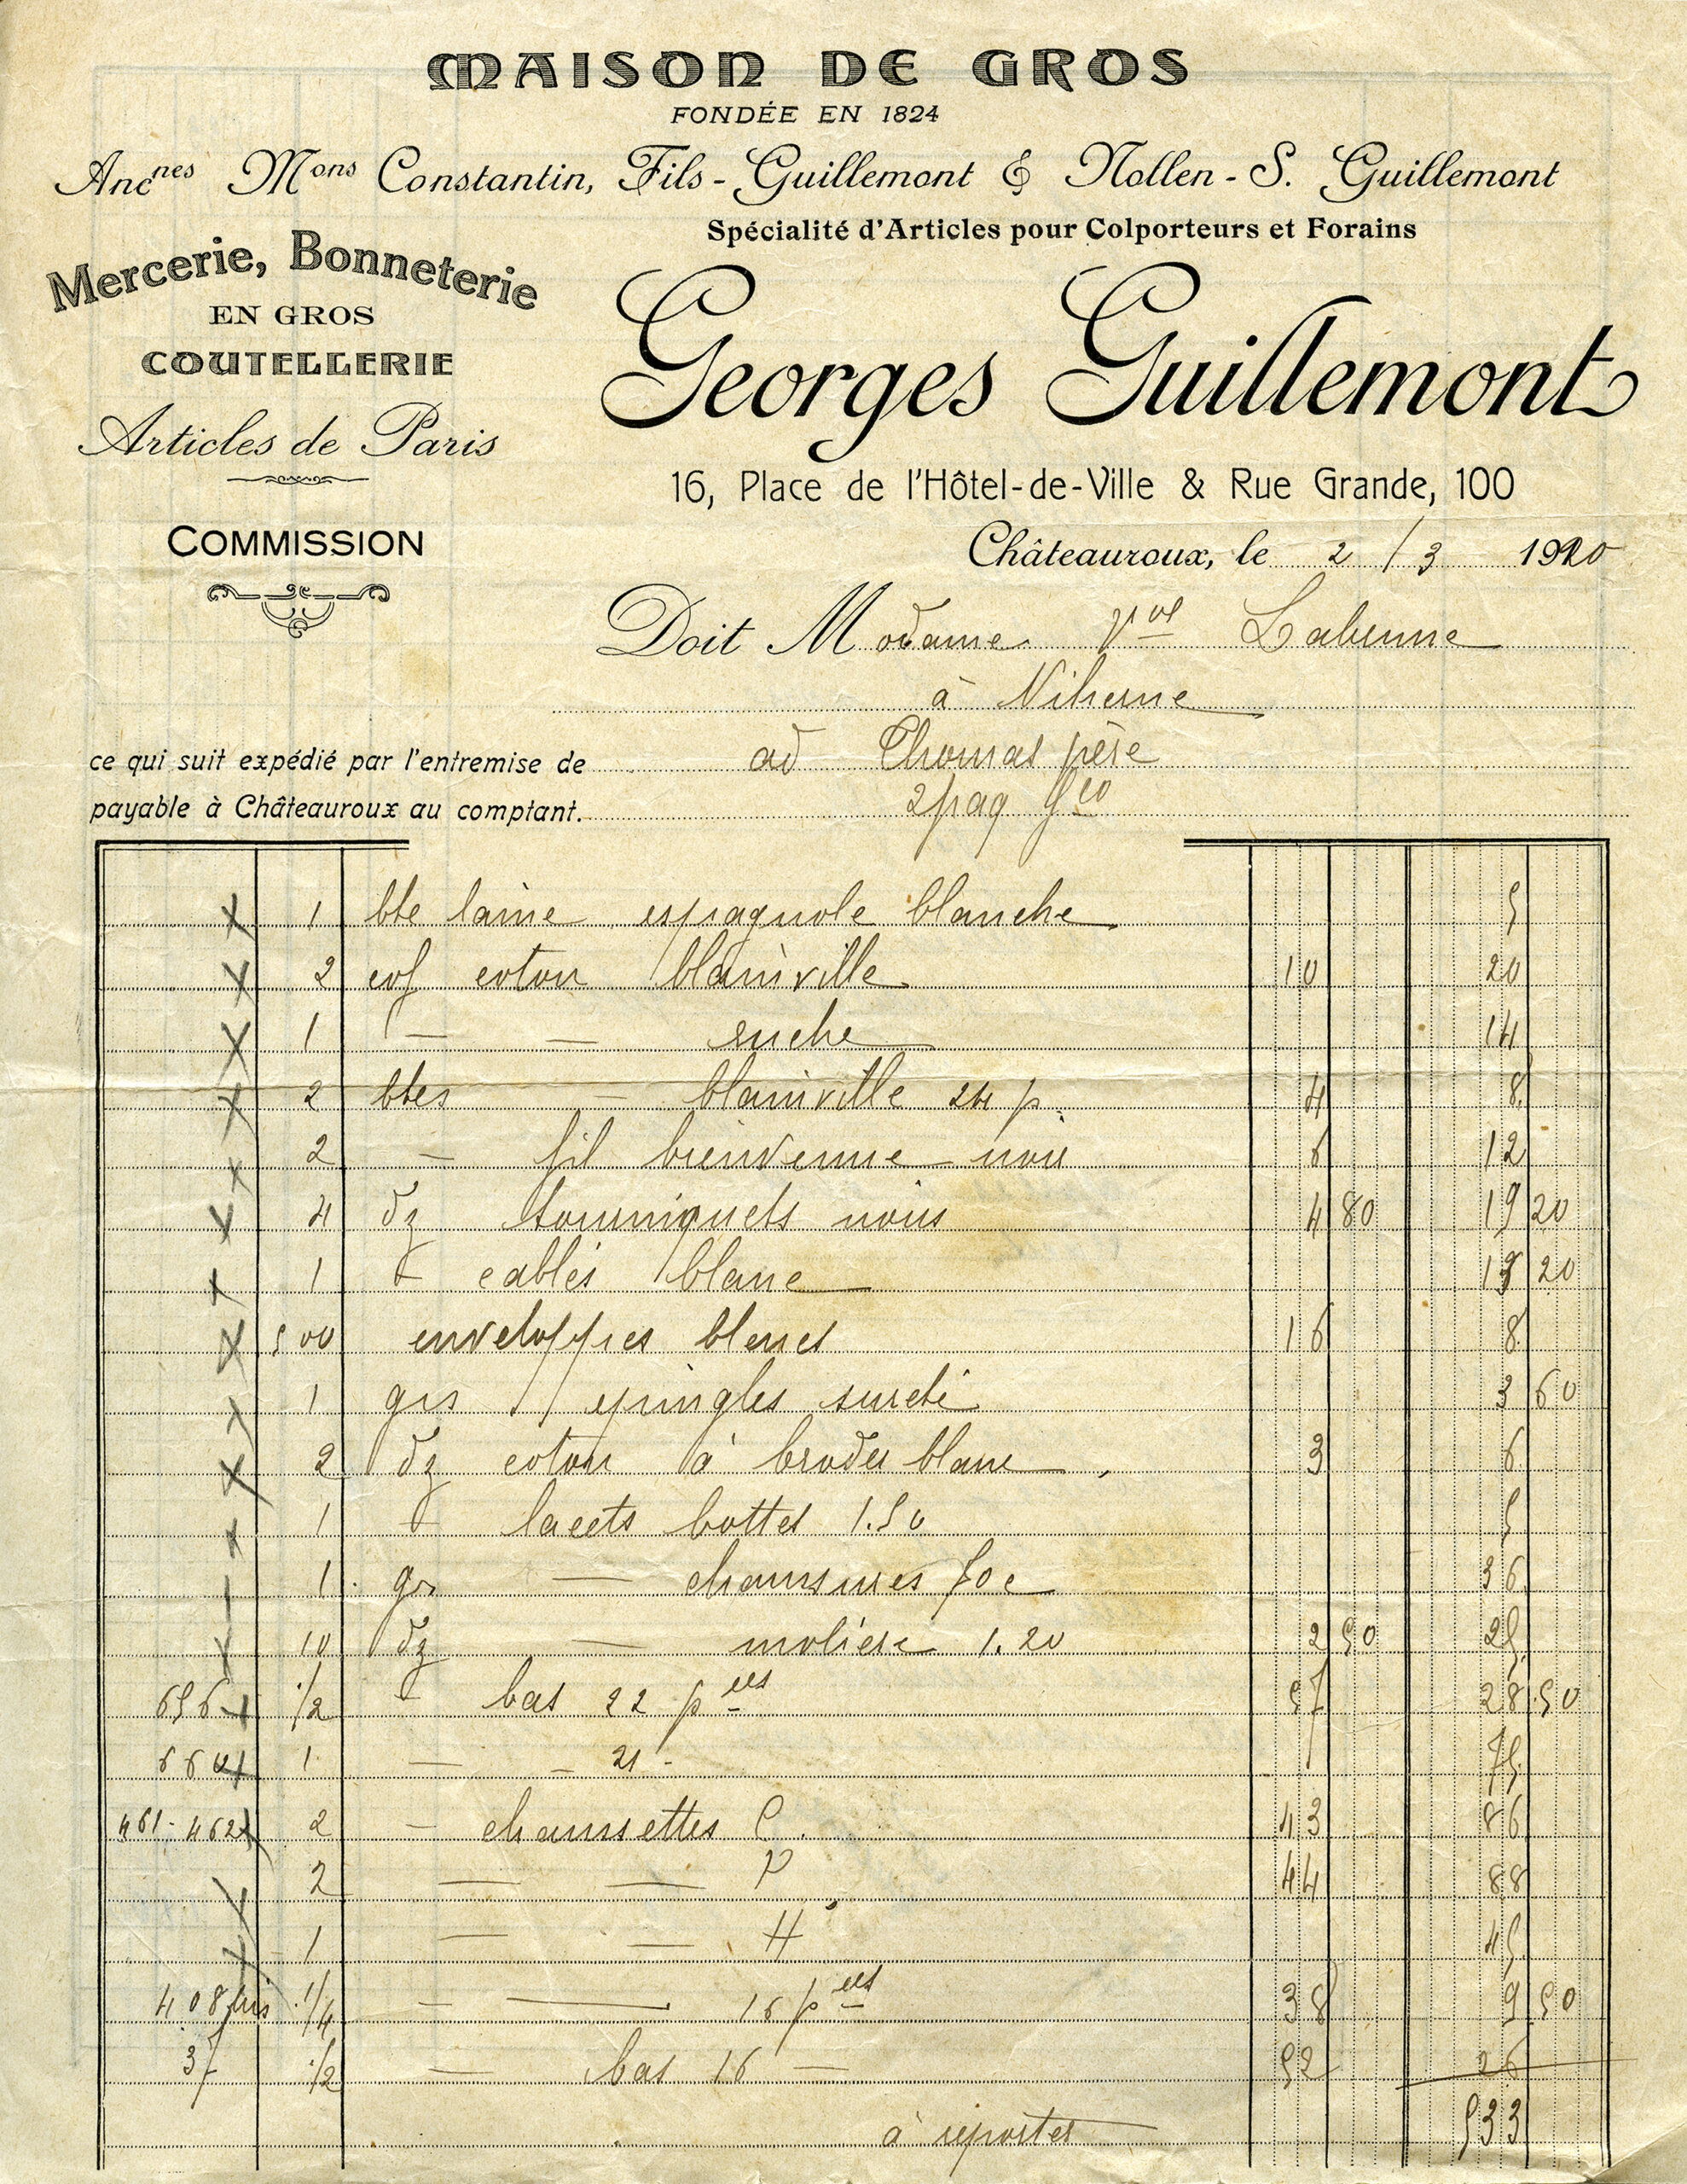 MAISON DE GROS
FONDÉE EN 1824
Anc^nes M^ons Constantin, Fils - Guillemont & Nollen - S. Guillemont
Spécialité d'Articles pour Colporteurs et Forains
Mercerie, Bonneterie
EN GROS
COUTELLERIE
Articles de Paris
COMMISSION
Georges Guillemont
16, Place de l'Hôtel-de-Ville & Rue Grande, 100
Châteauroux, le 2/3 1920
Doit Madame Vve Labenne
à Niherne
ce qui suit expédié par l'entremise de ad Thomas père
payable à Châteauroux au comptant. 2 paq
x 1 bte laine espagnole blanche 5
x 2 cof coton blainville 10 20
x 1 — — ruche 14
x 2 btes — blainville 24 p. 4 8
x 2 — fil bienvenue noir 6 12
x 4 dz tourniquets noirs 4 80 19 20
x 1 - cablés blanc 13 20
x 500 enveloppes bleues 16 8
x 1 grs epingles sureté 3 60
x 2 dz coton à broder blanc 3 6
x 1 - lacets bottes 1.50 5
1 gr — chaussures 70c 36
x 10 dz — molière 1.20 2 50 25
656 x 1/2 - bas 22 pces 57 28 50
x 1 — — 21 - 75
461-462 x 2 — chaussettes C. 43 86
x 2 — — P 44 88
x 1 — — H 45
408 bis 1/4 — — 16 pces 38 9 50
37 1/2 — bas 16 — 52 26
à reporter 533